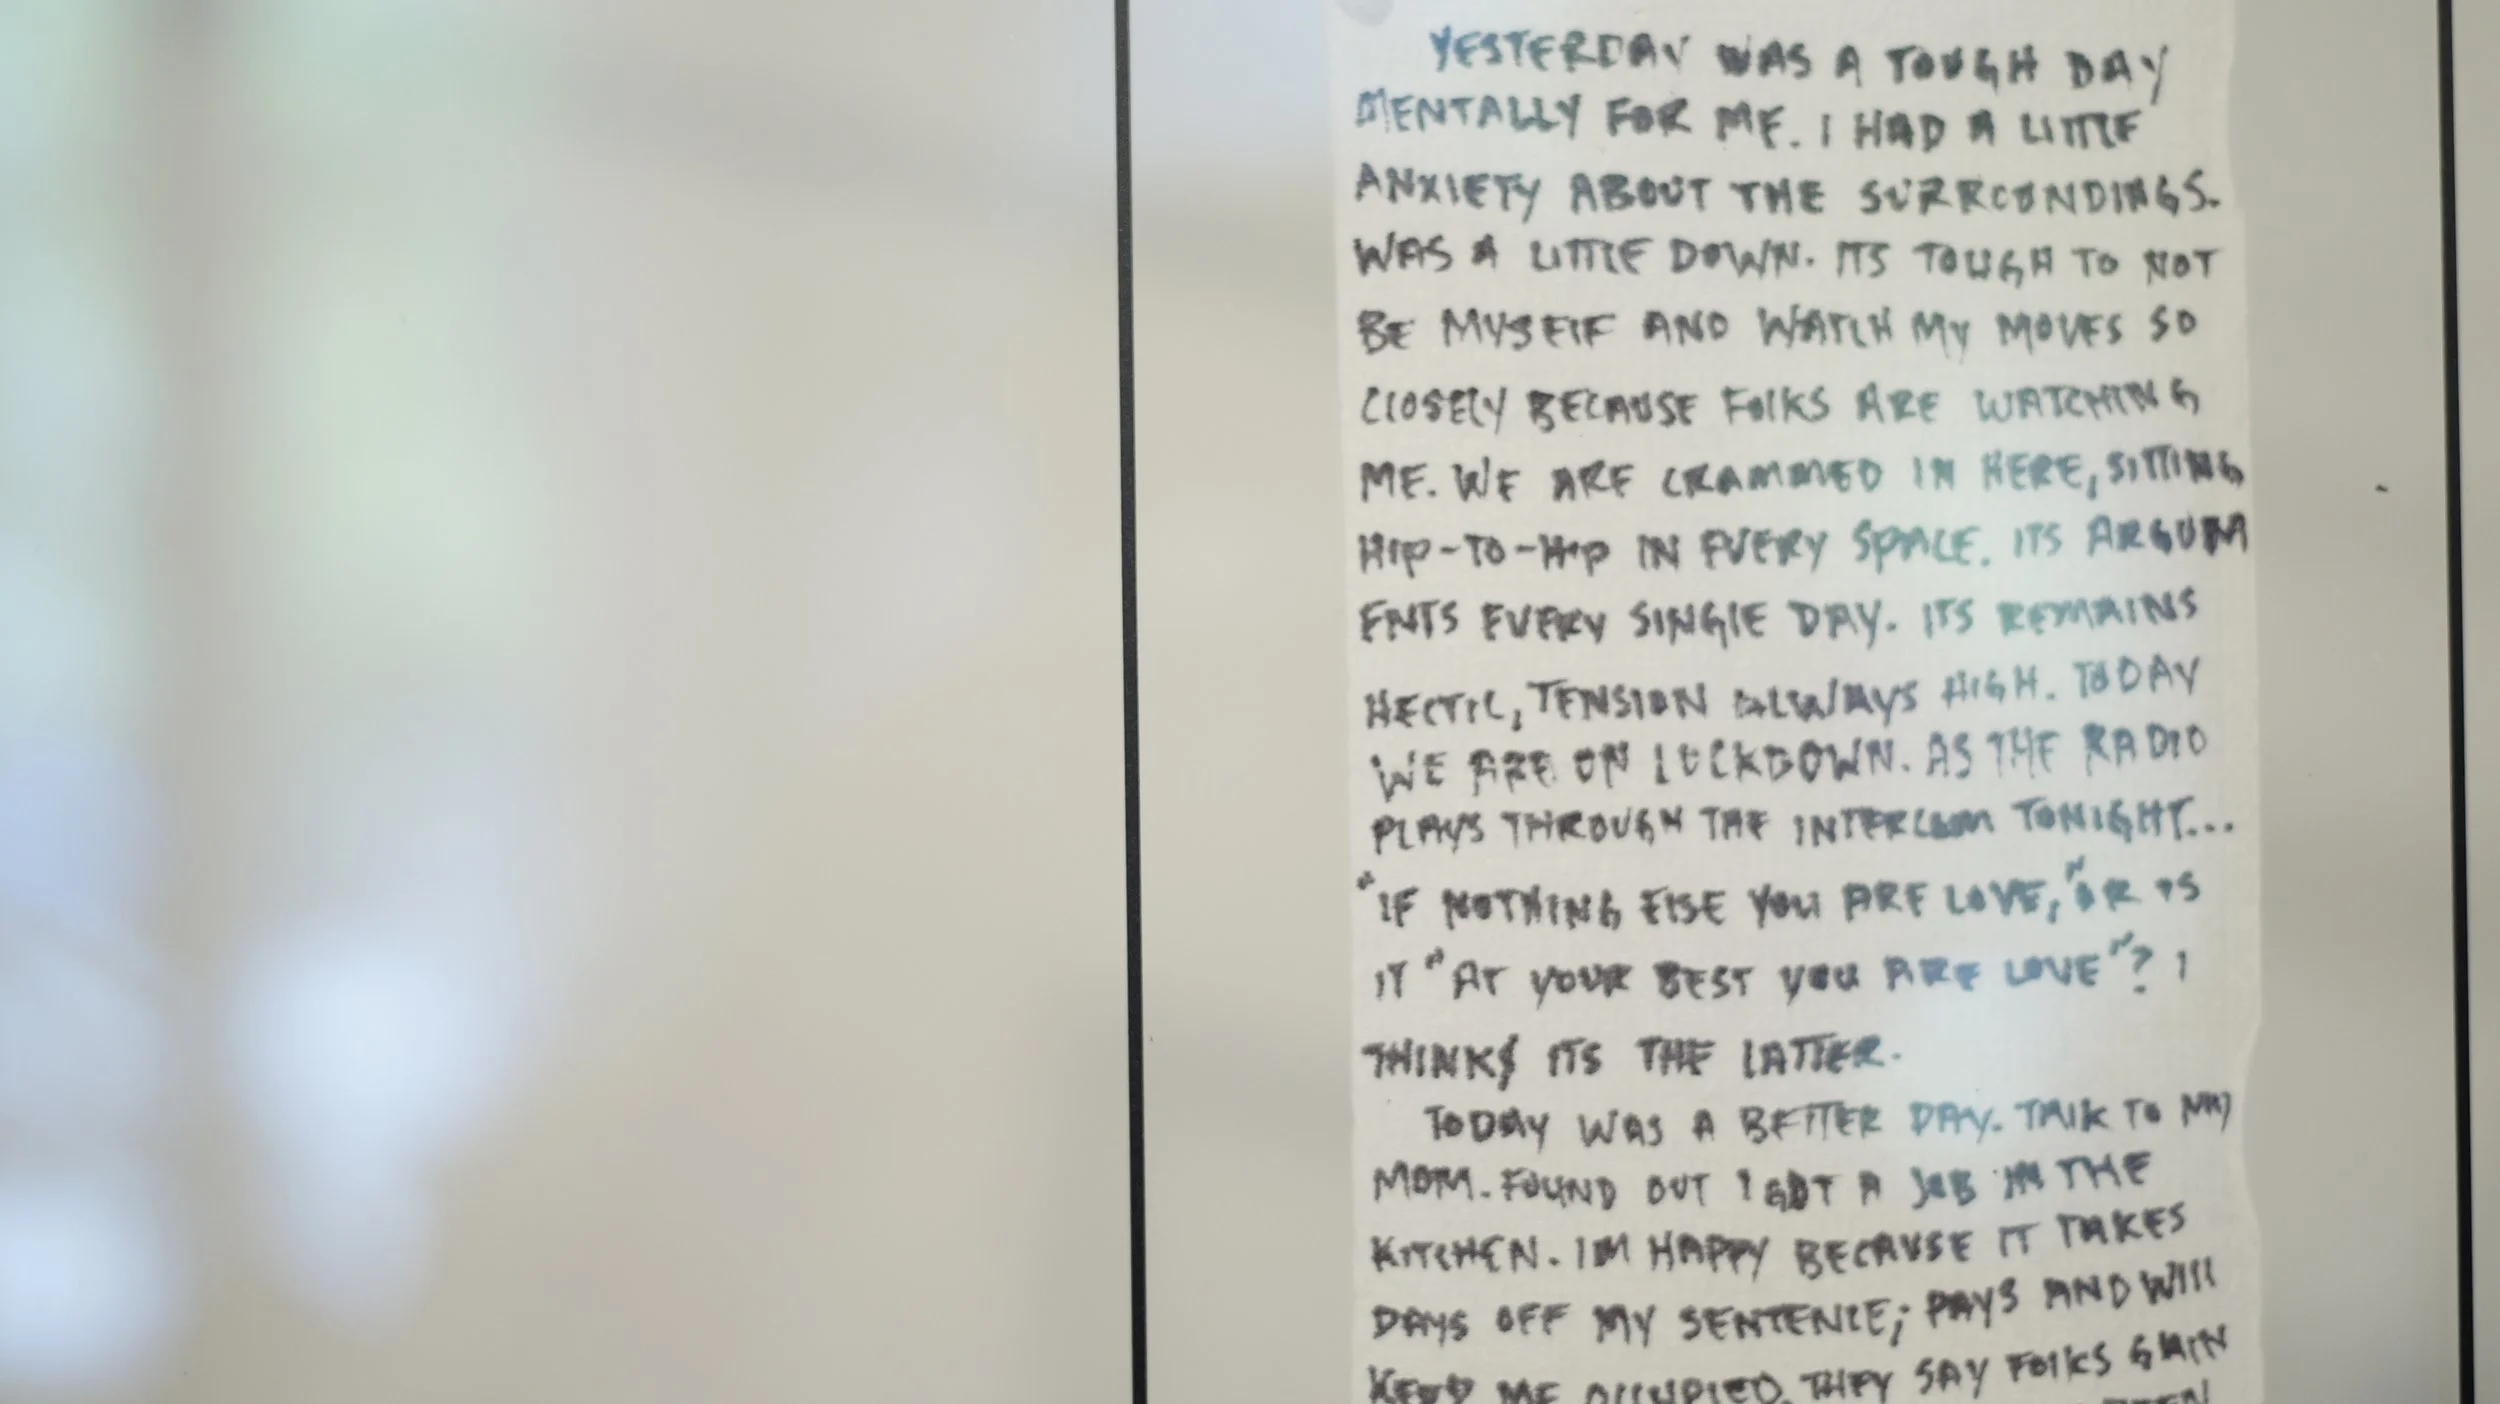 YESTERDAY WAS A TOUGH DAY
MENTALLY FOR ME. I HAD A LITTLE
ANXIETY ABOUT THE SURROUNDINGS.
WAS A LITTLE DOWN. ITS TOUGH TO NOT
BE MYSELF AND WATCH MY MOVES SO
CLOSELY BECAUSE FOLKS ARE WATCHING
ME. WE ARE CRAMMED IN HERE, SITTING
HIP-TO-HIP IN EVERY SPACE. ITS ARGUM
ENTS EVERY SINGLE DAY. ITS REMAINS
HECTIC, TENSION ALWAYS HIGH. TODAY
WE ARE ON LOCKDOWN. AS THE RADIO
PLAYS THROUGH THE INTERCOM TONIGHT...
"IF NOTHING ELSE YOU ARE LOVE," OR IS
IT "AT YOUR BEST YOU ARE LOVE"? I
THINK ITS THE LATTER.
TODAY WAS A BETTER DAY. TALK TO MY
MOM. FOUND OUT I GOT A JOB IN THE
KITCHEN. IM HAPPY BECAUSE IT TAKES
DAYS OFF MY SENTENCE; PAYS AND WILL
KEEP ME OCCUPIED. THEY SAY FOLKS GAIN